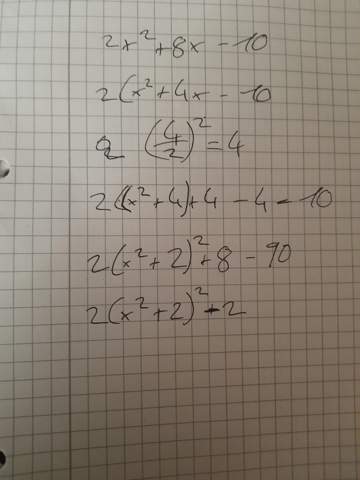 2x² + 8x - 10
2(x² + 4x - 10
2 (4/2)² = 4
2((x² + 4) + 4 - 4 - 10
2(x² + 2)² + 8 - 90
2(x² + 2)² - 2